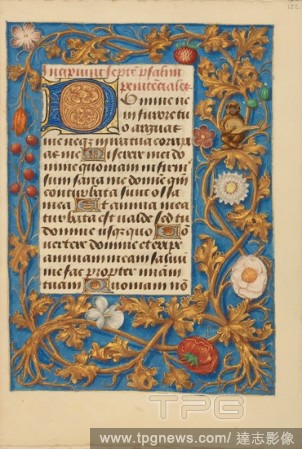 Incipiunt septe psalmi
penitenciales
Domine ne
in furore tuo
arguas
me neqz in ira tua corripi
as me Miserere mei do
mine quoniam infirmus
sum sana me domine quoniam
conturbata sunt ossa
mea Et anima mea
turbata est valde sed tu
domine usquequo
vertere domine et eripe
animam meam
me fac propter
am Quoniam nō
TPG
www.tpgnews.com/達志影像